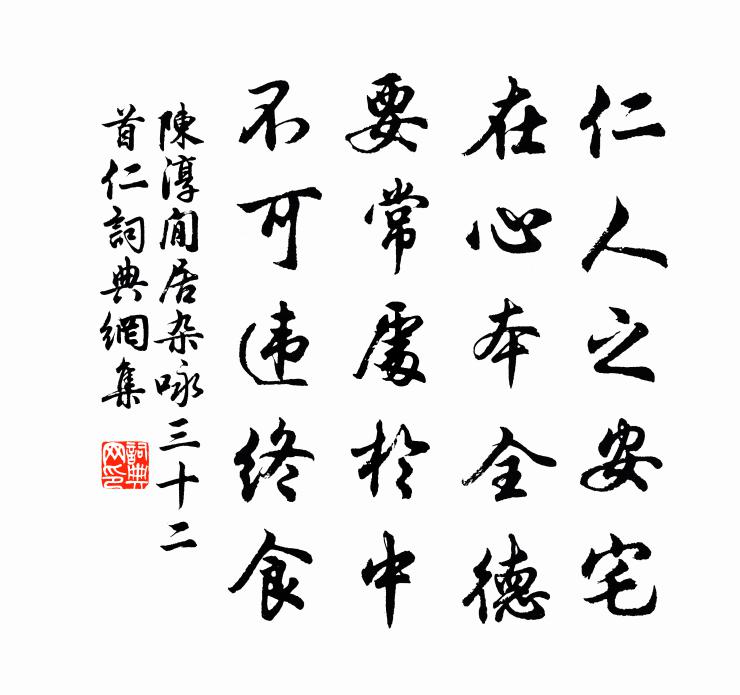 仁人之安宅
在心本全德
要常處於中
不可违终食
陳淳閒居杂咏三十二
首仁詞典網集
詞典網印